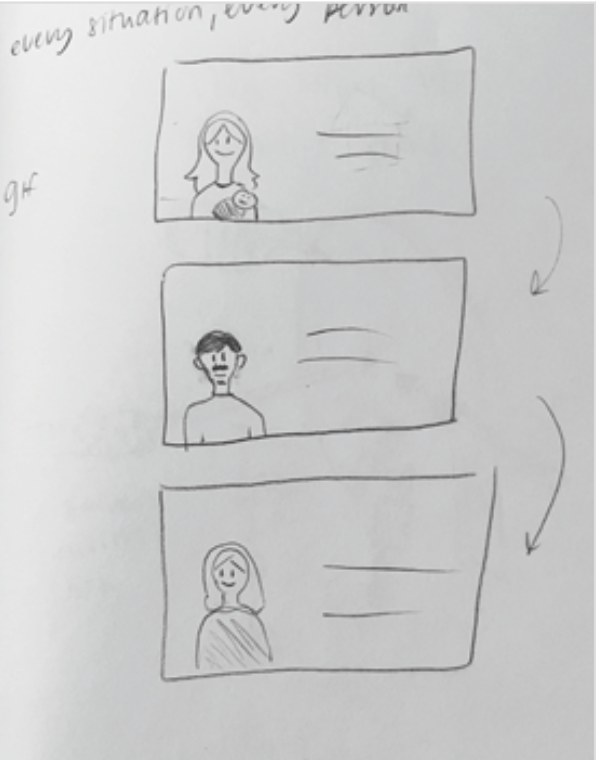 every situation, every person
gif